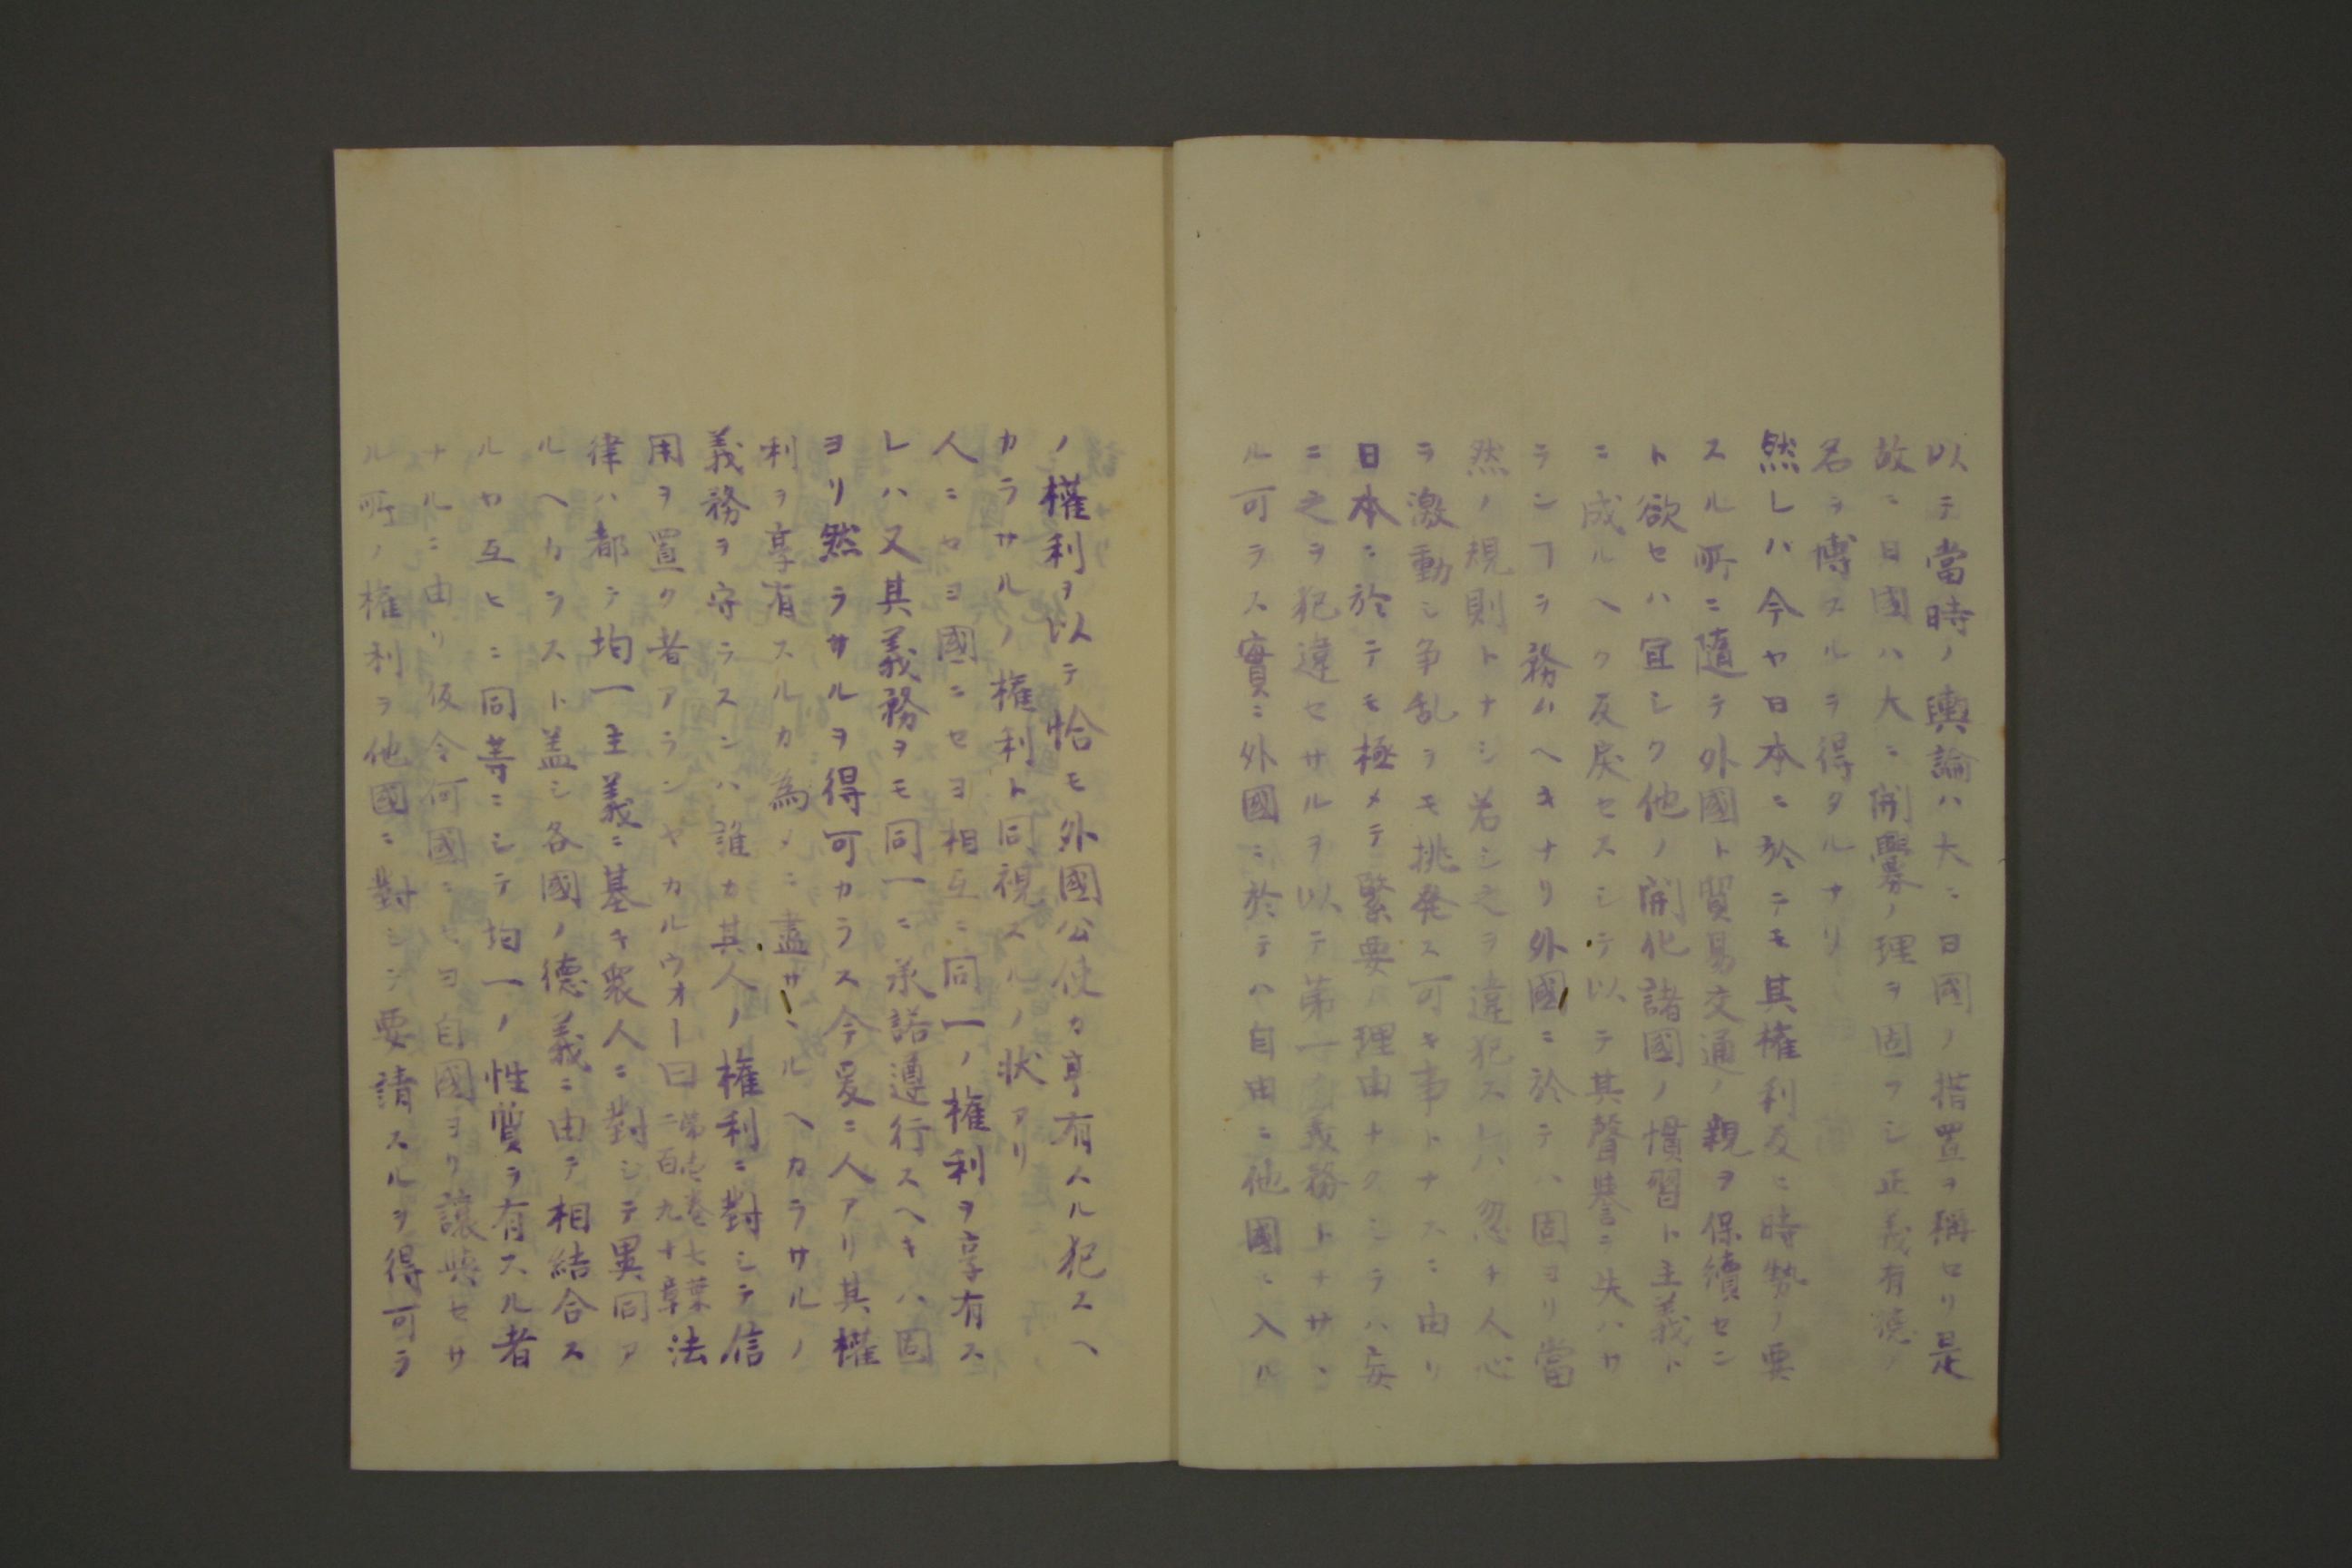 以テ當時ノ輿論ハ大ニ日國ノ措置ヲ稱セリ是
故ニ日國ハ大ニ開釁ノ理ヲ固フシ正義有徳ノ
名ヲ博スルヲ得タルナリ
然レバ今ヤ日本ニ於テモ其権利及ヒ時勢ノ要
スル所ニ随テ外國ト貿易交通ノ親ヲ保續セン
ト欲セハ宜シク他ノ開化諸國ノ慣習ト主義ト
ニ成ルヘク反戻セスシテ以テ其聲誉ニ失ハサ
ランヿヲ務ムヘキナリ外國ニ於テハ固ヨリ當
然ノ規則トナシ若シ之ヲ違犯スレハ忽チ人心
ヲ激動シ争乱ヲモ挑発ス可キ事トナスニ由リ
日本ニ於テモ極メテ緊要ノ理由ナクシテハ妄
ニ之ヲ犯違セサルヲ以テ第一ノ義務トナサヽ
ル可ラス實ニ外國ニ於テハ自由ニ他國ニ入ル
ノ權利ヲ以テ恰モ外國公使カ享有スル犯スヘ
カラサルノ権利ト同視スルノ状アリ
人ニセヨ國ニセヨ相互ニ同一ノ権利ヲ享有ス
レハ又其義務ヲモ同一ニ承諾遵行スヘキハ固
ヨリ然ラサルヲ得可カラス今爰ニ人アリ其權
利ヲ享有スルカ為メニ盡サヽルヘカラサルノ
義務ヲ守ラスンハ誰カ其人ノ権利ニ對シテ信
用ヲ置ク者アランヤカルウオー曰第壱巻七葉二百九十章法
律ハ都テ均一主義ニ基キ衆人ニ對シテ異同ア
ルヘカラスト盖シ各國ノ德義ニ由テ相結合ス
ルヤ互ヒニ同等ニシテ均一ノ性質ヲ有スル者
ナルニ由リ仮令何國ニセヨ自國ヨリ譲與セサ
ル所ノ権利ヲ他國ニ對シテ要請スルヲ得可ラ